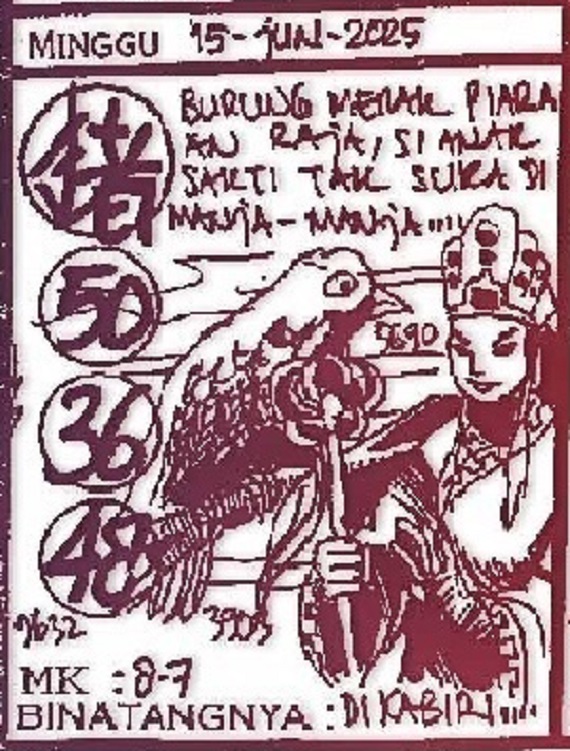 MINGGU 15-JUNI-2025
BURUNG MERAK PIARA
AN RAJA, SI ANAK
SAKTI TAK SUKA DI
MANJA-MANJA....
猪
50
36
48
5690
9632
MK : 8-7
BINATANGNYA : DI KABIRI....